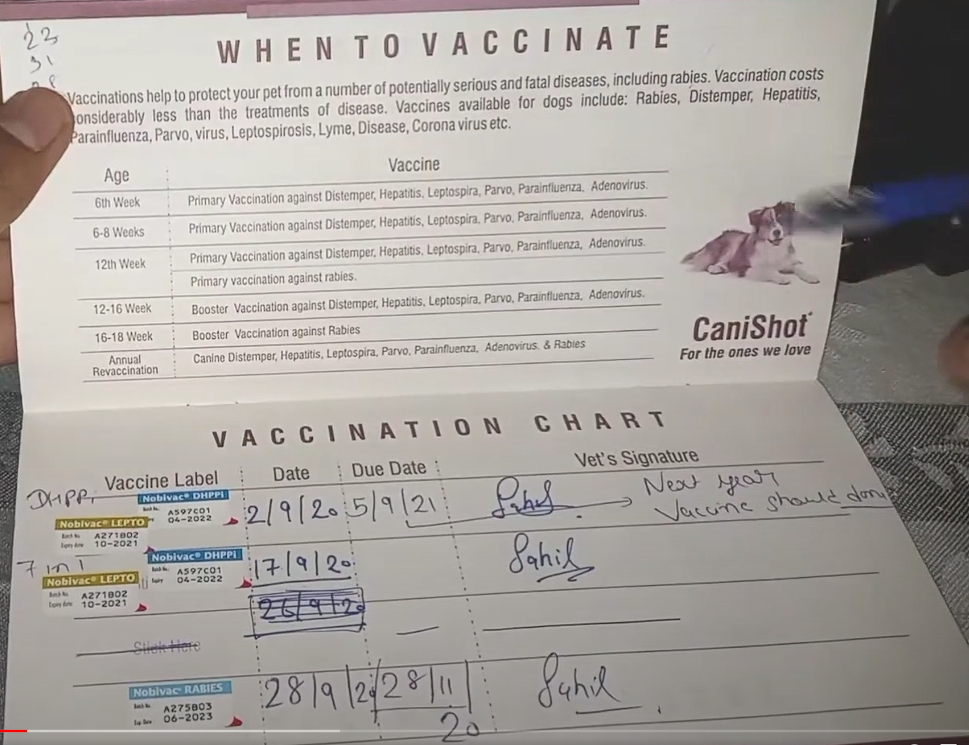 22
31
WHEN TO VACCINATE
Vaccinations help to protect your pet from a number of potentially serious and fatal diseases, including rabies. Vaccination costs
onsiderably less than the treatments of disease. Vaccines available for dogs include: Rabies, Distemper, Hepatitis,
Parainfluenza, Parvo, virus, Leptospirosis, Lyme, Disease, Corona virus etc.
Age Vaccine
6th Week Primary Vaccination against Distemper, Hepatitis, Leptospira, Parvo, Parainfluenza, Adenovirus.
6-8 Weeks Primary Vaccination against Distemper, Hepatitis, Leptospira, Parvo, Parainfluenza, Adenovirus.
12th Week Primary Vaccination against Distemper, Hepatitis, Leptospira, Parvo, Parainfluenza, Adenovirus.
Primary vaccination against rabies.
12-16 Week Booster Vaccination against Distemper, Hepatitis, Leptospira, Parvo, Parainfluenza, Adenovirus.
16-18 Week Booster Vaccination against Rabies
Annual
Revaccination Canine Distemper, Hepatitis, Leptospira, Parvo, Parainfluenza, Adenovirus. & Rabies
CaniShot
For the ones we love
VACCINATION CHART
Vaccine Label Date Due Date Vet's Signature
DHPPi
Nobivac® DHPPi
A597C01
04-2022
Nobivac® LEPTO
Batch No. A271B02
Expiry date 10-2021
2/9/20 5/9/21 Sahil Next year
Vaccine should done
7 in 1
Nobivac® DHPPi
Batch No. A597C01
Expiry 04-2022
Nobivac® LEPTO
Batch No. A271B02
Expiry date 10-2021
17/9/20 Sahil
26/9/20
Stick Here
Nobivac® RABIES
Batch No. A275B03
Exp. Date 06-2023
28/9/20 28/11
20 Sahil